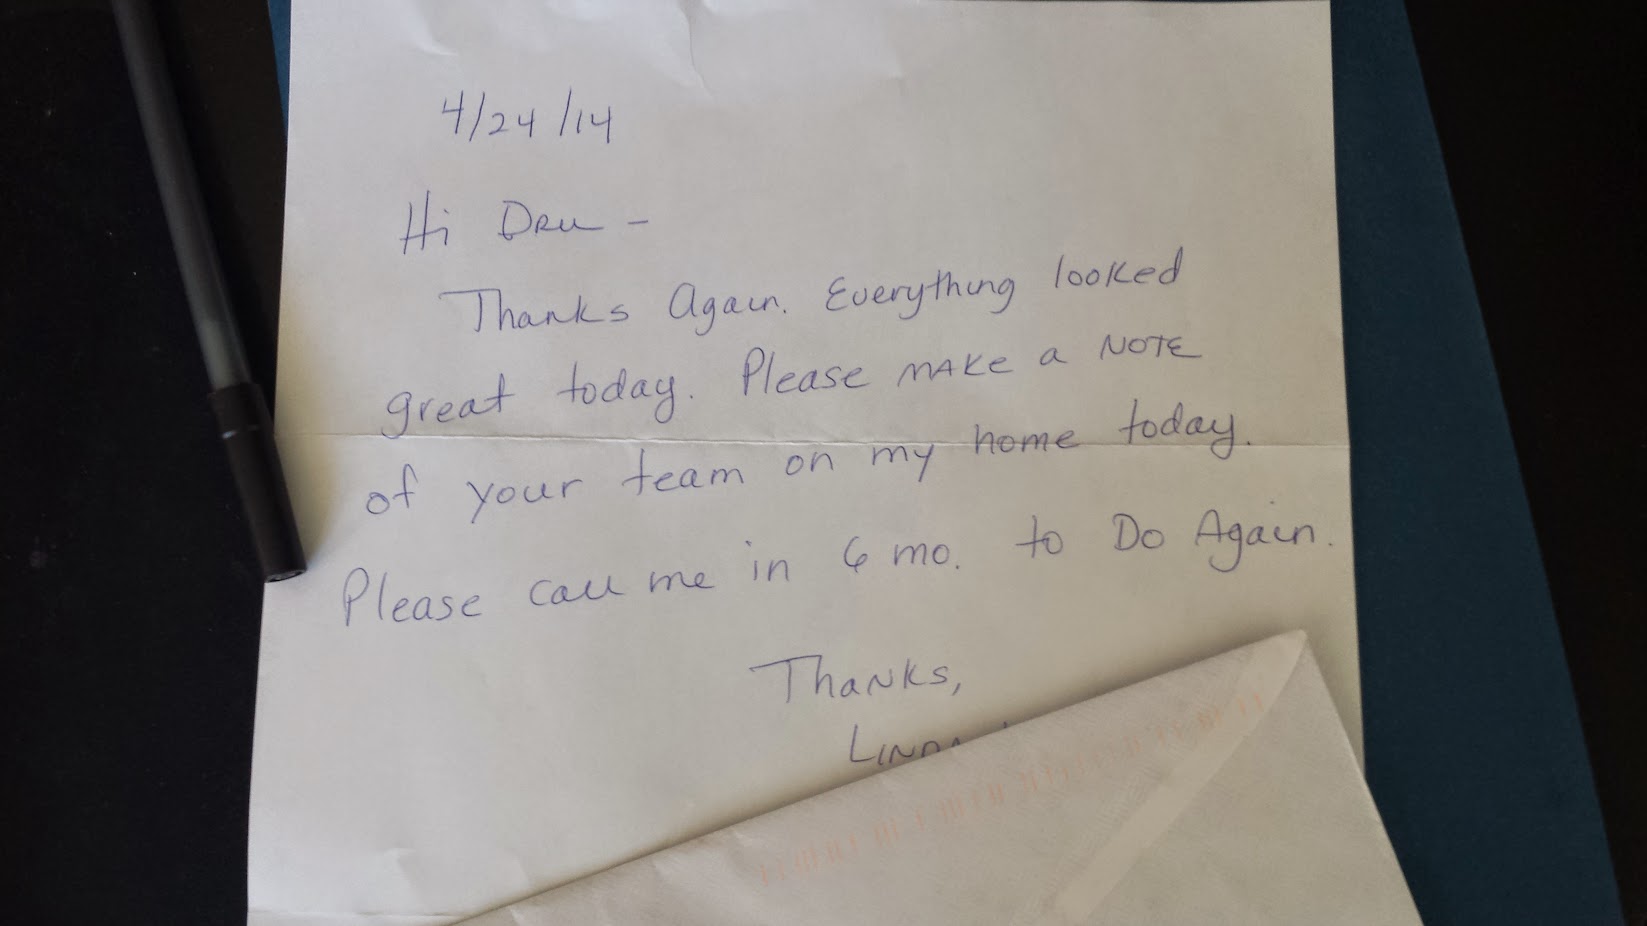 4/24/14
Hi Dru -
Thanks Again. Everything looked
great today. Please make a NOTE
of your team on my home today.
Please call me in 6 mo. to Do Again.
Thanks,
Linda